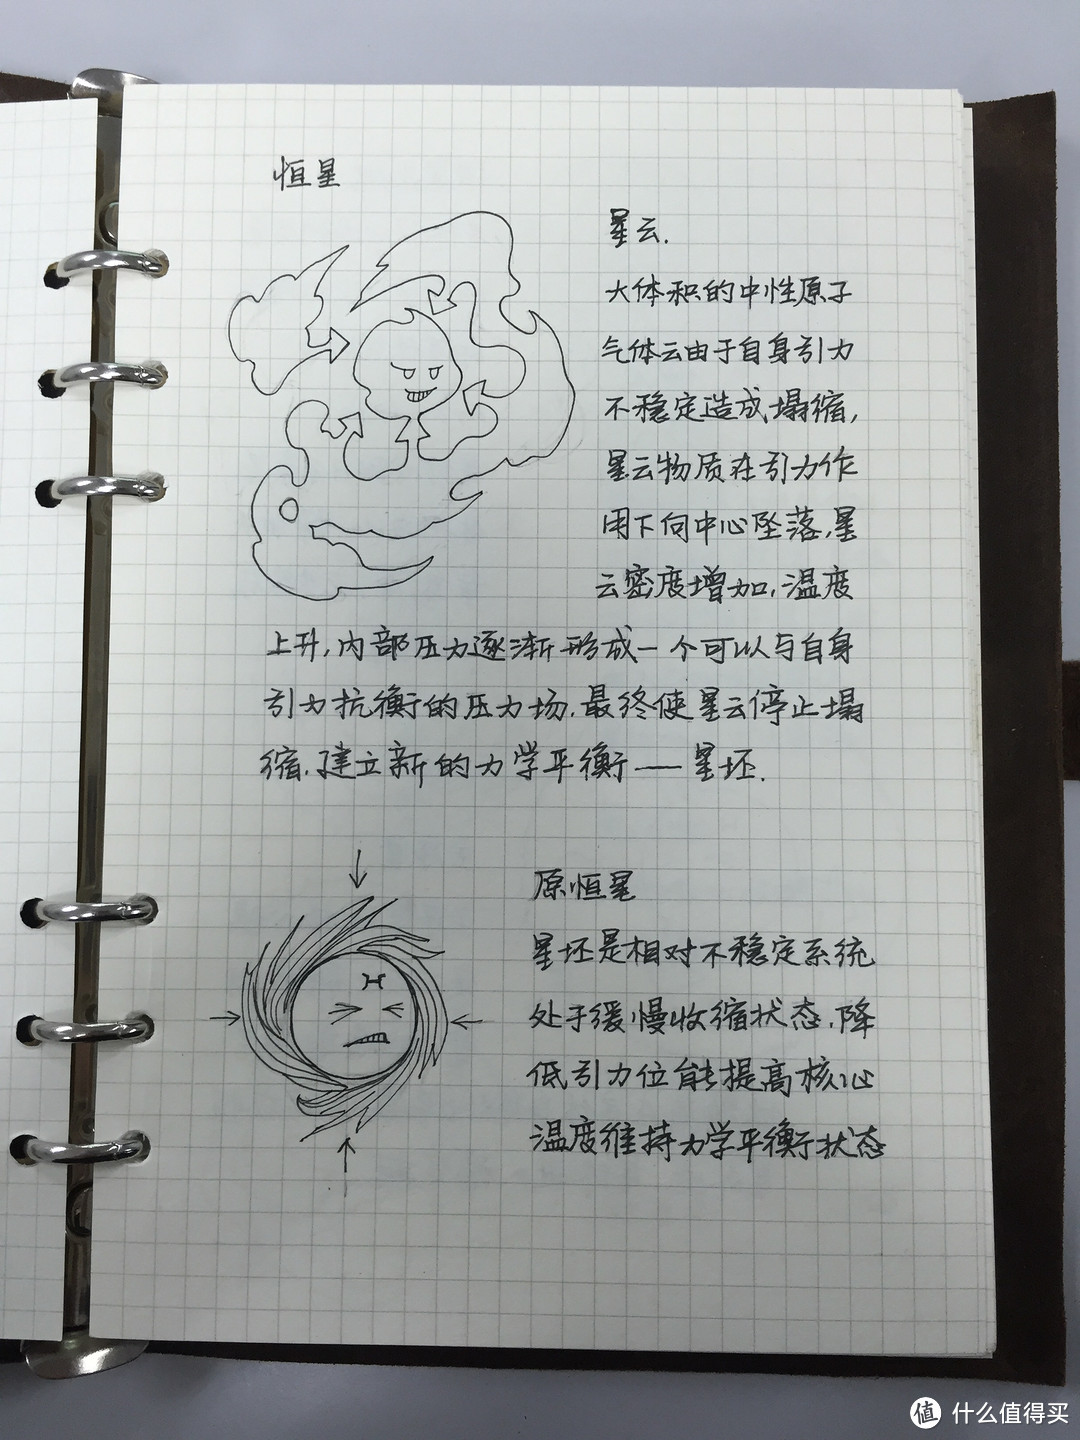 恒星
星云.
大体积的中性原子
气体云由于自身引力
不稳定造成塌缩,
星云物质在引力作
用下向中心坠落,星
云密度增加,温度
上升,内部压力逐渐形成一个可以与自身
引力抗衡的压力场,最终使星云停止塌
缩,建立新的力学平衡——星坯.
原恒星
星坯是相对不稳定系统
处于缓慢收缩状态,降
低引力位能提高核心
温度维持力学平衡状态
值 什么值得买